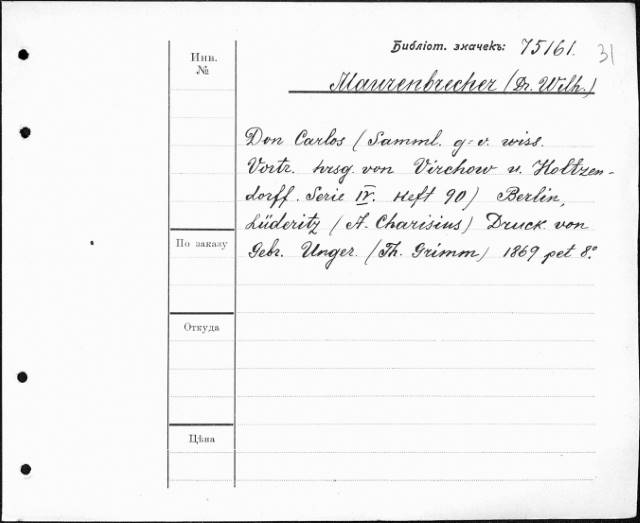 Библіот. значекъ: 75161. 31
Инв.
№
Maurenbrecher (Dr. Wilh.)
Don Carlos (Samml. g-v. wiss.
Vortr. hrsg von Virchow u. Holtzen-
dorff. Serie IV. Heft 90) Berlin,
Lüderitz (A. Charisius) Druck von
Gebr. Unger. (Th. Grimm) 1869 pet 8.º
По заказу
Откуда
Цѣна